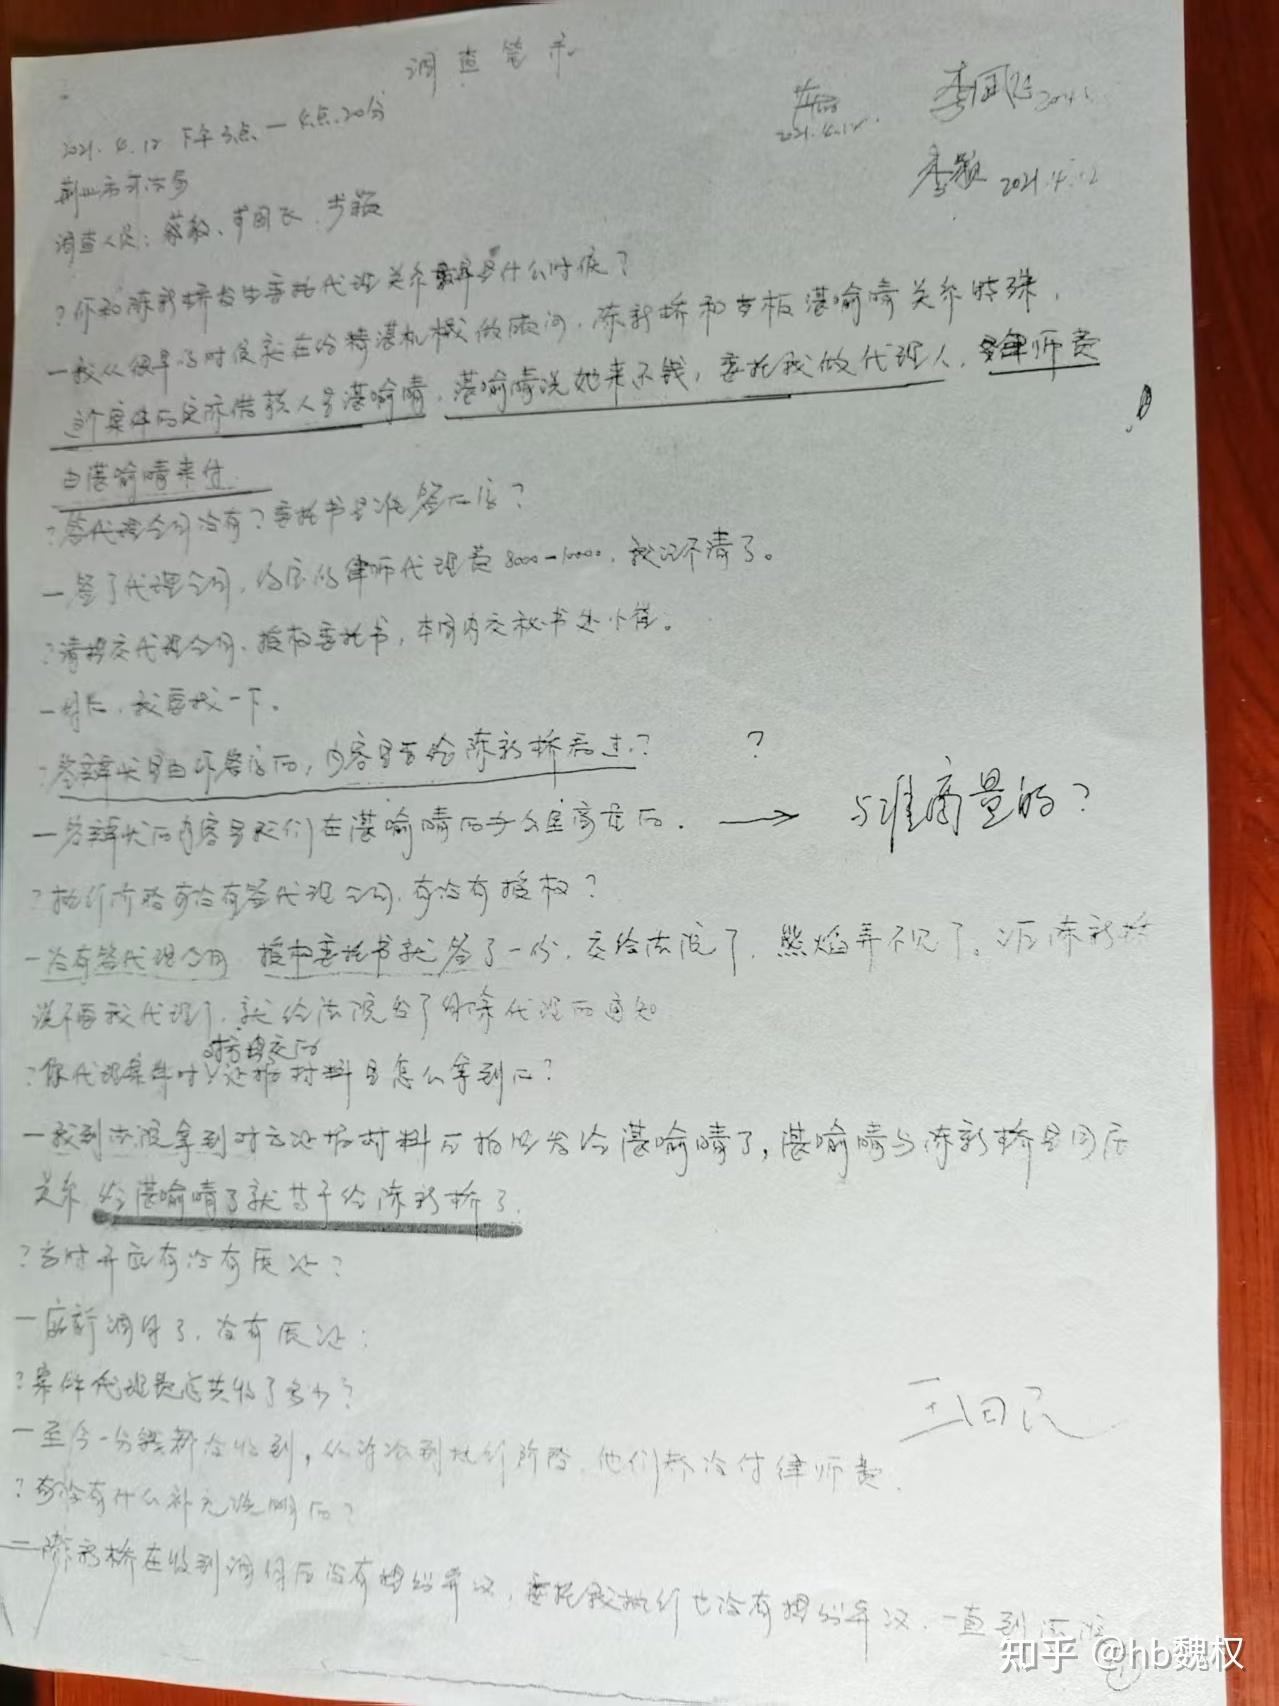 调查笔录
2021.4.12 下午3点一4点20分
2021.4.12
李国
荆州市司法局
李颖 2021.4.12
调查人员:蔡毅、李国
李颖
?你和陈新桥发生委托代理关系是什么时候?
一我从很早的时候就在给精湛机械做顾问,陈新桥和老板湛喻晴关系特殊,
这个案件的实际借款人是湛喻晴,湛喻晴说她来不钱,委托我做代理人,律师费
由湛喻晴来付.
?签代理合同没有?委托书是谁签的字?
一签了代理合同,约定的律师代理费8000-10000,我记不清了。
?请提交代理合同、授权委托书,本周内交秘书处小崔。
一好的,我要找一下。
?答辩状是由你签字的,内容是否给陈新桥看过? ?
一答辩状的内容是我们在湛喻晴的办公室商量的. → 与谁商量的?
?执行阶段有没有签代理合同,有没有授权?
一没有签代理合同,授权委托书就签了一份,交给法院了,熊焰弄不见了。后陈新桥
说不要我代理了,就给法院发了解除代理的通知
对方提交的
?你代理案件时证据材料是怎么拿到的?
一我到法院拿到对方证据材料后拍照发给湛喻晴了,湛喻晴与陈新桥是同居
关系,给湛喻晴了就等于给陈新桥了.
?当时开庭有没有质证?
一庭前调解了,没有质证;
?案件代理费总共收了多少?
一至今一分钱都没收到,从诉讼到执行阶段,他们都没付律师费.
?有没有什么补充说明的?
一陈新桥在收到调解后没有提出异议,委托我执行也没有提出异议,一直到法院
知乎 @hb魏权